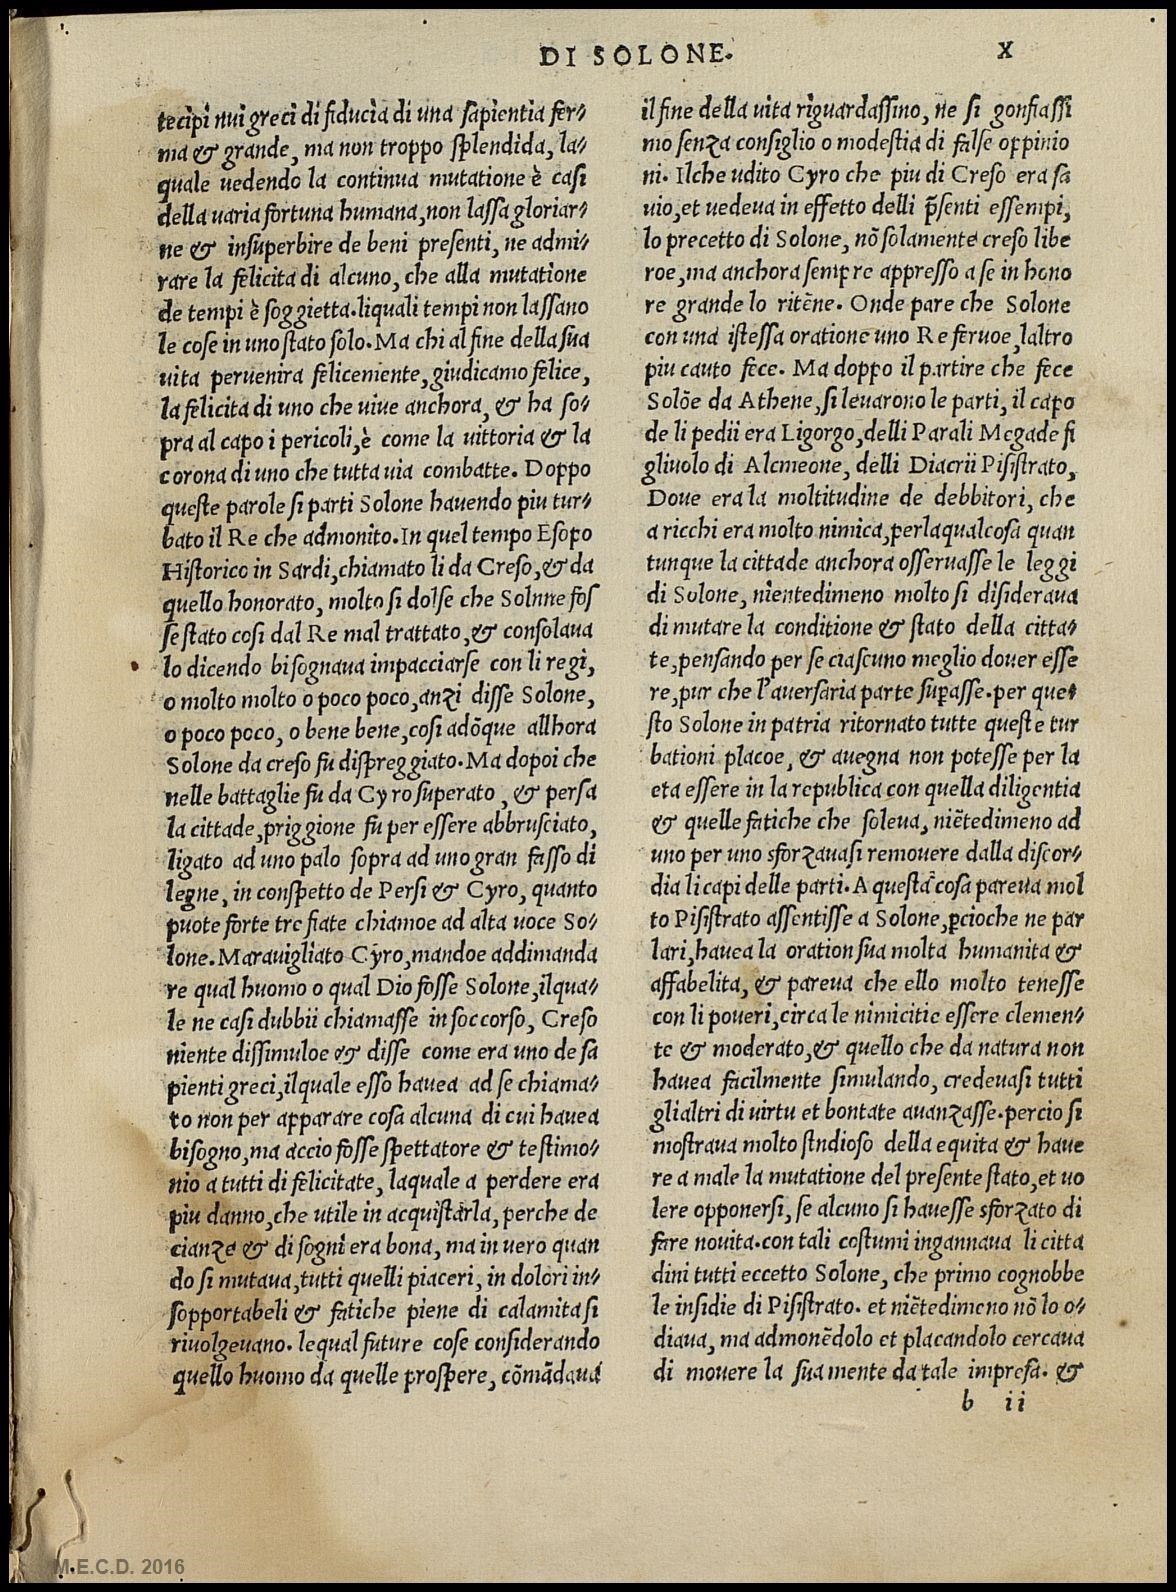 DI SOLONE.
X
tecipi nui greci di fiducia di una sapientia fer-
ma & grande, ma non troppo splendida, la-
quale uedendo la continua mutatione è casi
della uaria fortuna humana, non lassa gloriar-
ne & insuperbire de beni presenti, ne admi-
rare la felicita di alcuno, che alla mutatione
de tempi è soggietta. liquali tempi non lassano
le cose in uno stato solo. Ma chi al fine della sua
uita peruenira felicemente, giudicamo felice,
la felicita di uno che uiue anchora, & ha so-
pra al capo i pericoli, è come la uittoria & la
corona di uno che tutta uia combatte. Doppo
queste parole si parti Solone hauendo piu tur-
bato il Re che admonito. In quel tempo Esopo
Historico in Sardi, chiamato li da Creso, & da
quello honorato, molto si dolse che Solnne fos
se stato cosi dal Re mal trattato, & consolaua
lo dicendo bisognaua impacciarse con li regi,
o molto molto o poco poco, anzi disse Solone,
o poco poco, o bene bene, cosi adõque allhora
Solone da creso fu dispreggiato. Ma dopoi che
nelle battaglie fu da Cyro superato, & persa
la cittade, priggione fu per essere abbrusciato,
ligato ad uno palo sopra ad uno gran fasso di
legne, in conspetto de Persi & Cyro, quanto
puote forte tre fiate chiamoe ad alta uoce So-
lone. Marauigliato Cyro, mandoe addimanda
re qual huomo o qual Dio fosse Solone, ilqua-
le ne casi dubbii chiamasse in soccorso, Creso
niente dissimuloe & disse come era uno de sa
pienti greci, ilquale esso hauea ad se chiama-
to non per apparare cosa alcuna di cui hauea
bisogno, ma accio fosse spettatore & testimo-
nio a tutti di felicitate, laquale a perdere era
piu danno, che utile in acquistarla, perche de
cianze & di sogni era bona, ma in uero quan
do si mutaua, tutti quelli piaceri, in dolori in-
sopportabeli & fatiche piene di calamita si
riuolgeuano. lequal future cose considerando
quello huomo da quelle prospere, cõmãdaua
il fine della uita riguardassino, ne si gonfiassi
mo senza consiglio o modestia di false oppinio
ni. Ilche udito Cyro che piu di Creso era sa
uio, et uedeua in effetto delli p̃senti essempi,
lo precetto di Solone, nõ solamente creso libe
roe, ma anchora sempre appresso a se in hono
re grande lo ritẽne. Onde pare che Solone
con una istessa oratione uno Re seruoe, laltro
piu cauto fece. Ma doppo il partire che fece
Solõe da Athene, si leuarono le parti, il capo
de li pedii era Ligorgo, delli Parali Megade fi
gliuolo di Alcmeone, delli Diacrii Pisistrato,
Doue era la moltitudine de debbitori, che
a ricchi era molto nimica, perlaqualcosa quan
tunque la cittade anchora osseruasse le leggi
di Solone, nientedimeno molto si disideraua
di mutare la conditione & stato della citta-
te, pensando per se ciascuno meglio douer esse
re, pur che l'auersaria parte suꝑasse. per que-
sto Solone in patria ritornato tutte queste tur
bationi placoe, & auegna non potesse per la
eta essere in la republica con quella diligentia
& quelle fatiche che soleua, niẽtedimeno ad
uno per uno sforzauasi remouere dalla discor-
dia li capi delle parti. A questa cosa pareua mol
to Pisistrato assentisse a Solone, ꝑcioche ne par
lari, hauea la oration sua molta humanita &
affabelita, & pareua che ello molto tenesse
con li poueri, circa le nimicitie essere clemen-
te & moderato, & quello che da natura non
hauea facilmente simulando, credeuasi tutti
glialtri di uirtu et bontate auanzasse. percio si
mostraua molto stndioso della equita & haue
re a male la mutatione del presente stato, et uo
lere opponersi, se alcuno si hauesse sforzato di
fare nouita. con tali costumi ingannaua li citta
dini tutti eccetto Solone, che primo cognobbe
le insidie di Pisistrato. et niẽtedimeno nõ lo o-
diaua, ma admonẽdolo et placandolo cercaua
di mouere la sua mente da tale impresa. &
b ii
M.E.C.D. 2016